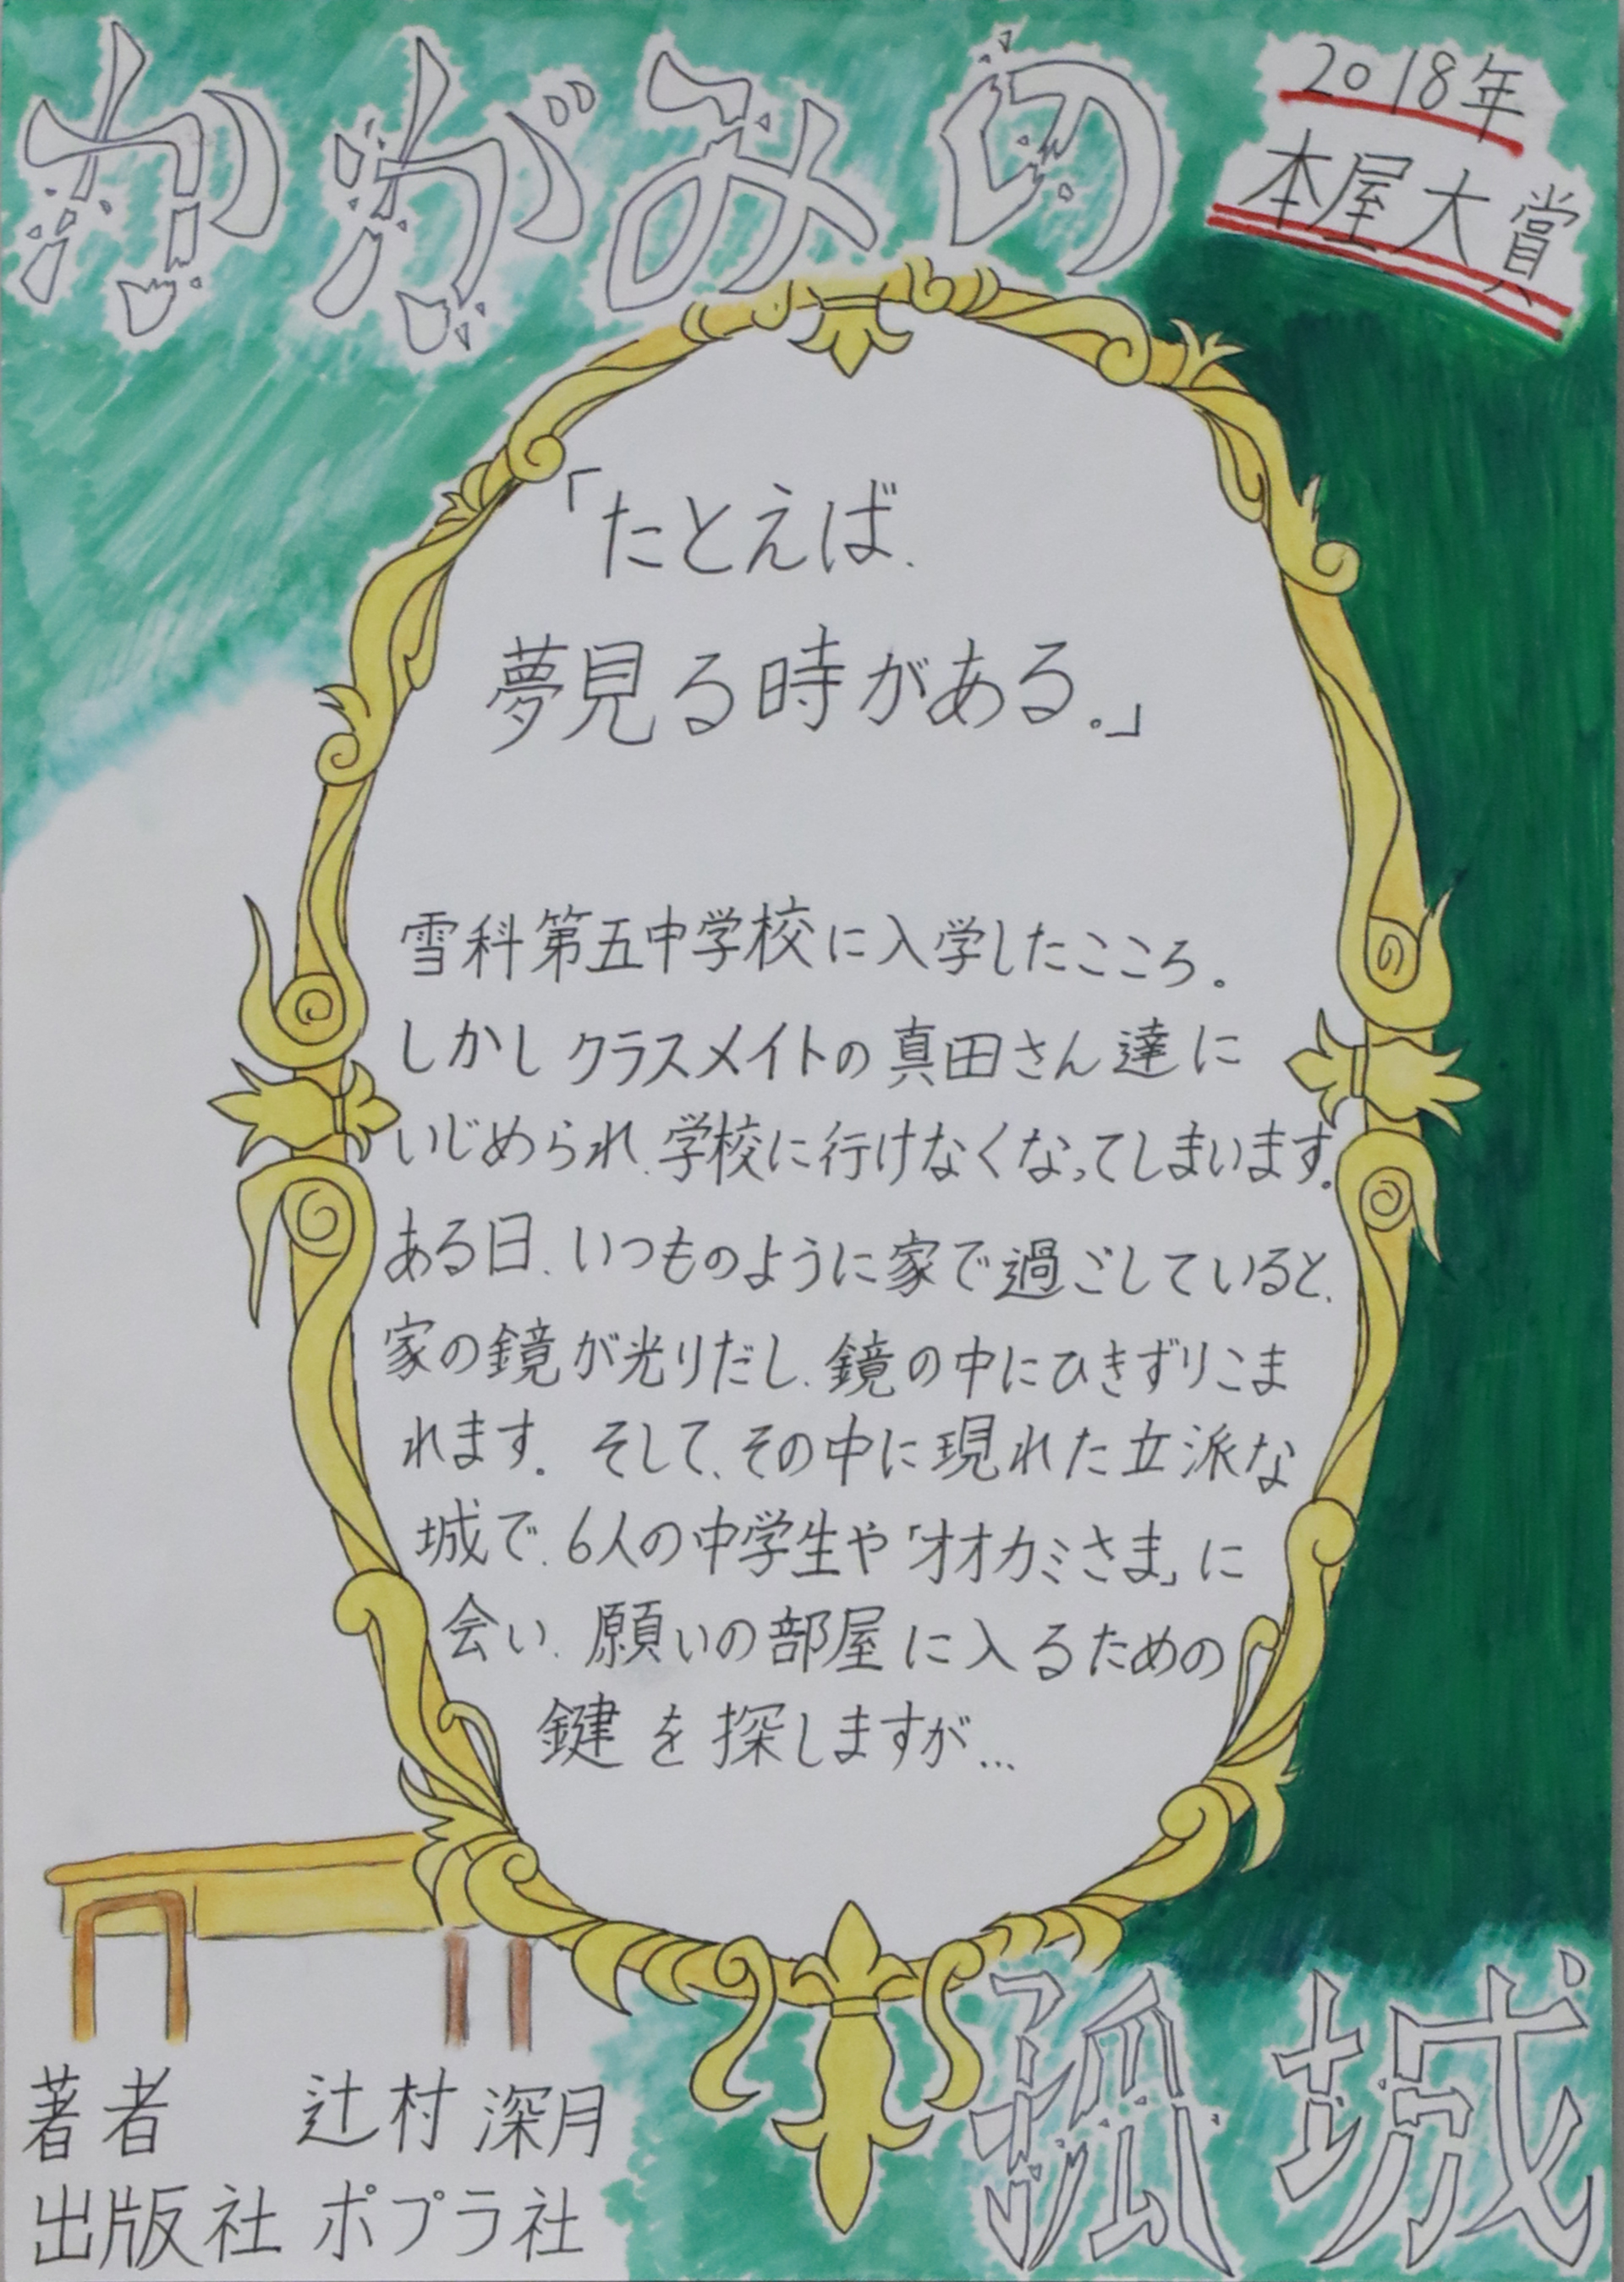 かがみの
2018年
本屋大賞
「たとえば、
夢見る時がある。」
雪科第五中学校に入学したこころ。
しかしクラスメイトの真田さん達に
いじめられ、学校に行けなくなってしまいます。
ある日、いつものように家で過ごしていると、
家の鏡が光りだし、鏡の中にひきずりこま
れます。そして、その中に現れた立派な
城で、6人の中学生や「オオカミさま」に
会い、願いの部屋に入るための
鍵を探しますが…
孤城
著者 辻村深月
出版社 ポプラ社